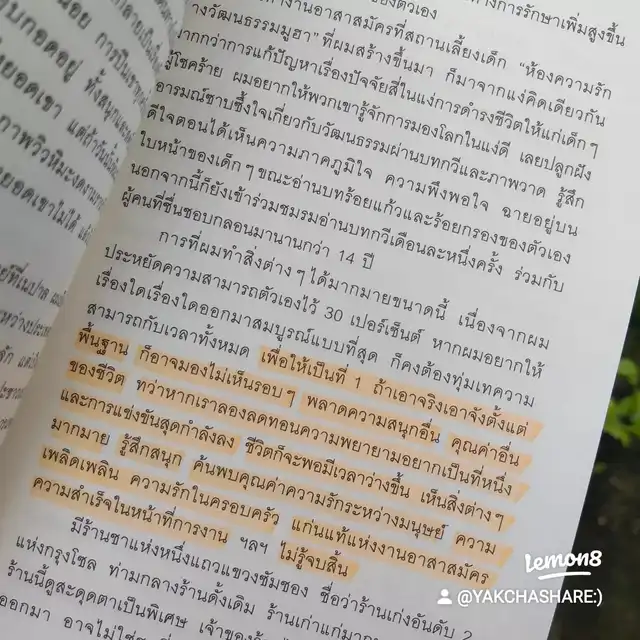 ทางการรักษาเพิ่มสูงขึ้น
งานอาสาสมัครที่สถานเลี้ยงเด็ก "ห้องความรัก
างวัฒนธรรมมูฮา" ที่ผมสร้างขึ้นมา ก็มาจากแง่คิดเดียวกัน
ากกว่าการแก้ปัญหาเรื่องปัจจัยสี่ในแง่การดำรงชีวิตให้แก่เด็กๆ
ผู้โชคร้าย ผมอยากให้พวกเขารู้จักการมองโลกในแง่ดี เลยปลูกฝัง
อารมณ์ซาบซึ้งใจเกี่ยวกับวัฒนธรรมผ่านบทกวีและภาพวาด รู้สึก
ดีใจตอนได้เห็นความภาคภูมิใจ ความพึงพอใจ ฉายอยู่บน
ใบหน้าของเด็กๆ ขณะอ่านบทร้อยแก้วและร้อยกรองของตัวเอง
นอกจากนี้ก็ยังเข้าร่วมชมรมอ่านบทกวีเดือนละหนึ่งครั้ง ร่วมกับ
ผู้คนที่ชื่นชอบกลอนมานานกว่า 14 ปี
การที่ผมทำสิ่งต่างๆ ได้มากมายขนาดนี้ เนื่องจากผม
ประหยัดความสามารถตัวเองไว้ 30 เปอร์เซ็นต์ หากผมอยากให้
เรื่องใดเรื่องใดออกมาสมบูรณ์แบบที่สุด ก็คงต้องทุ่มเทความ
สามารถกับเวลาทั้งหมด เพื่อให้เป็นที่ 1 ถ้าเอาจริงเอาจังตั้งแต่
พื้นฐาน ก็อาจมองไม่เห็นรอบๆ พลาดความสนุกอื่น คุณค่าอื่น
ของชีวิต ทว่าหากเราลองลดทอนความพยายามอยากเป็นที่หนึ่ง
และการแข่งขันสุดกำลังลง ชีวิตก็จะพอมีเวลาว่างขึ้น เห็นสิ่งต่างๆ
มากมาย รู้สึกสนุก ค้นพบคุณค่าความรักระหว่างมนุษย์ ความ
เพลิดเพลิน ความรักในครอบครัว แก่นแท้แห่งงานอาสาสมัคร
ความสำเร็จในหน้าที่การงาน ฯลฯ ไม่รู้จบสิ้น
มีร้านชาแห่งหนึ่งแถวแขวงซัมชอง ชื่อว่าร้านเก่งอันดับ 2
แห่งกรุงโซล ท่ามกลางร้านดั้งเดิม ร้านเก่าแก่มาก
ร้านนี้ดูสะดุดตาเป็นพิเศษ เจ้าของร้าน
ออกมา อาจไม่ใช่
lemon8
@YAKCHASHARE:)